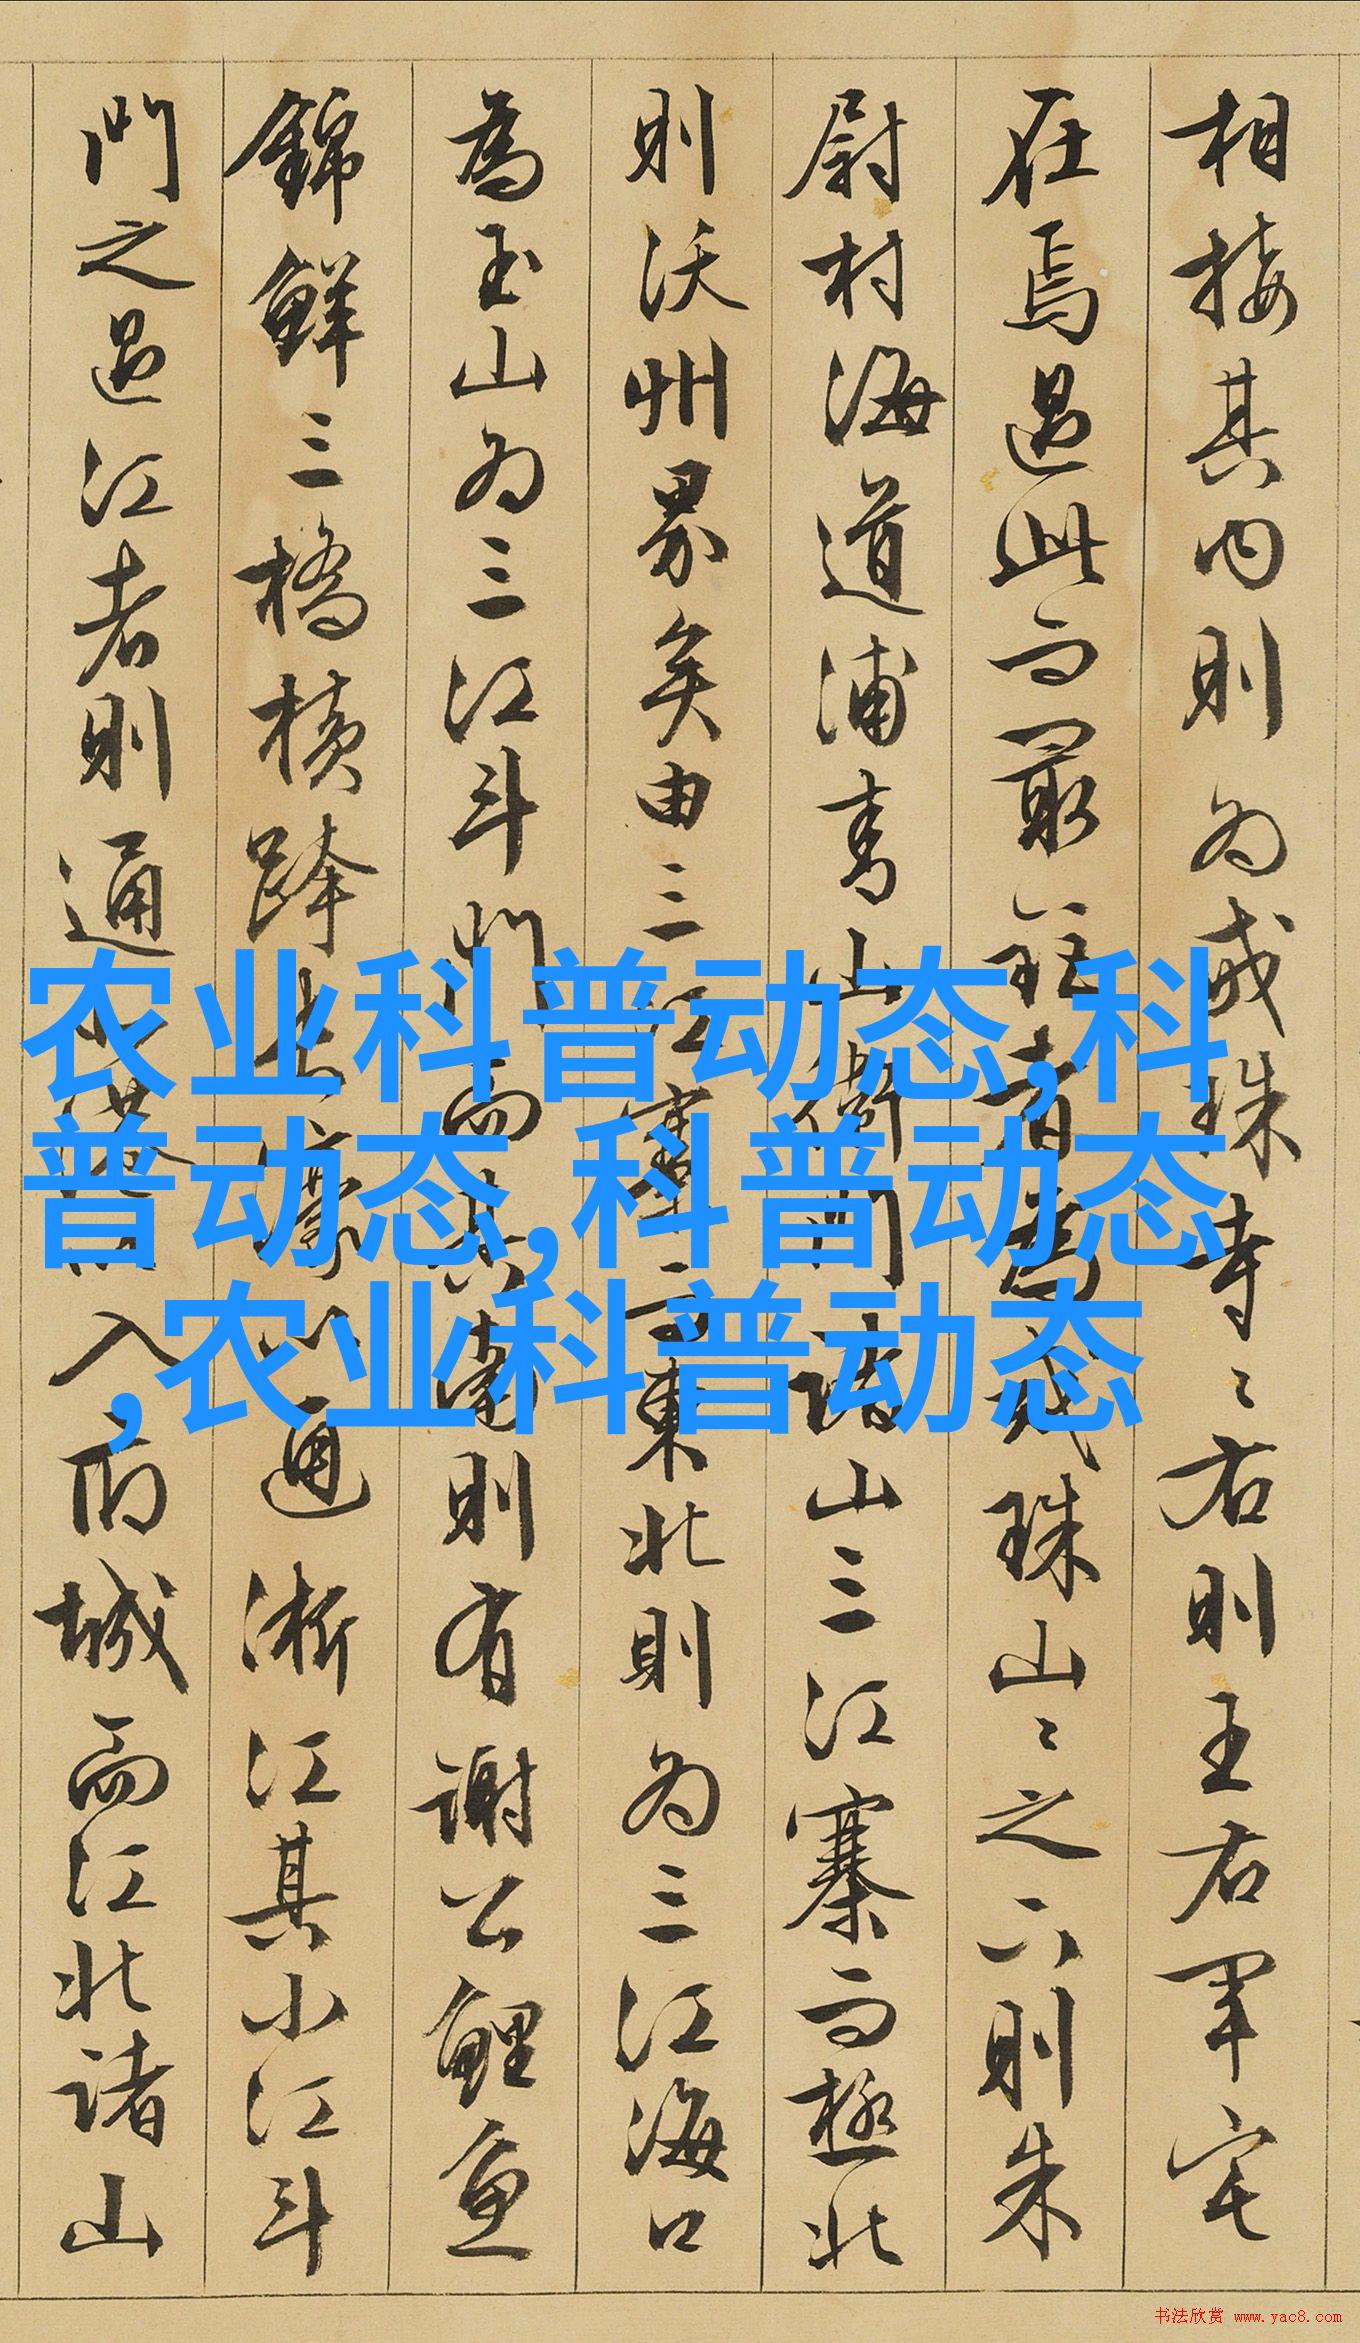 相接其内則为戒珠寺々右則王右軍宅
在焉過此而最 者為戒珠山々之 則朱
尉村海道浦 山 山三江寨而極北
則沃州界矣由三江 東北則为三江海口
為玉山为三江斗門而其南則有謝公鯉魚
錦鮮三橋横跨 通浙江其小江斗
門之過江者則通 入府城而江北諸山
农业科普动态,科
普动态,科普动态
,农业科普动态
书法欣赏 www.yac8.com